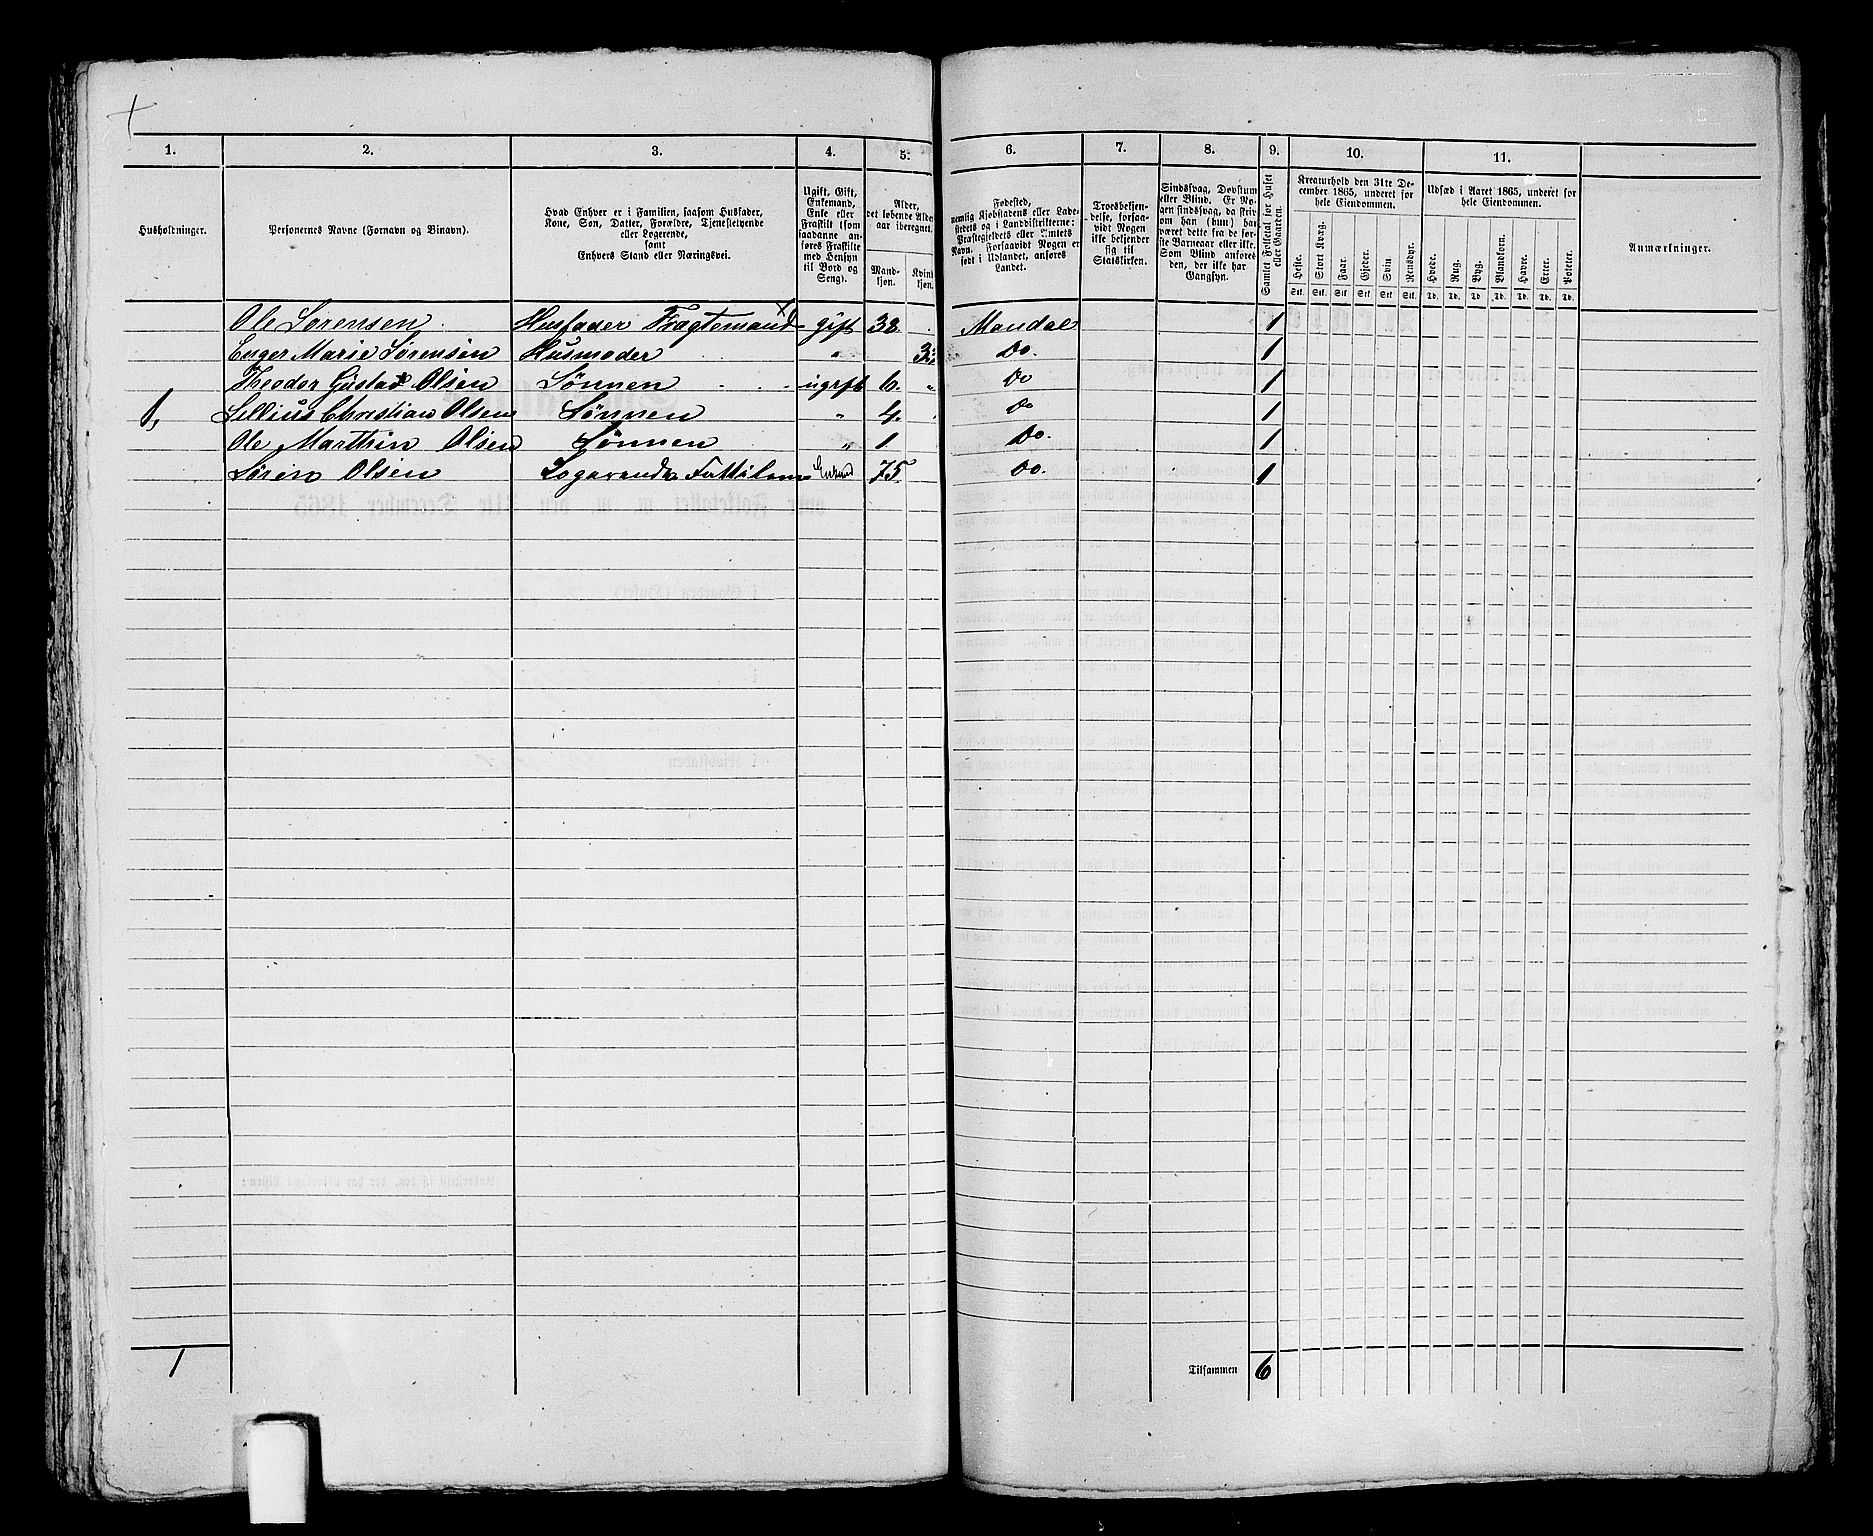 1. 2. 3. 4. 5. 6. 7. 8. 9. 10. 11.
Husholdninger.
Personernes Navne (Fornavn og Binavn).
Hvad Enhver er i Familien, saasom Husfader,
Kone, Søn, Datter, Forældre, Tjenestetyende
eller Logerende,
samt
Enhvers Stand eller Næringsvei.
Ugift, Gift,
Enkemand,
Enke eller
Fraskilt (som
saadanne an-
føres Fraskilte
med Hensyn
til Bord og
Seng).
Alder,
det løbende Alders-
aar iberegnet.
Mand-
kjøn.
Kvind
kjøn.
Fødested,
nemlig Kjøbstadens eller Lade-
stedets og i Landdistrikterne:
Præstegjeldets eller Amtets
Navn. Forsaavidt Nogen er
født i Udlandet, anføres
Landet.
Troesbekjen-
delse, forsaa-
vidt Nogen
ikke bekjender
sig til
Statskirken.
Sindssvag, Døvstum
eller Blind. Er No-
gen sindssvag, da skriv
om han (hun) har
været dette fra de før-
ste Barneaar eller ikke.
Som Blind anføres
den, der ikke har
Gangsyn.
Samlet Folketal for Huset
eller Gaarden.
Kreaturhold den 31te De-
cember 1865, underet for
hele Eiendommen.
Heste. Stort Kvæg. Faar. Gjeder. Svin Rensdyr.
Stk. Stk. Stk. Stk. Stk. Stk.
Udsæd i Aaret 1865, underet for
hele Eiendommen.
Hvede. Rug. Byg. Blandkorn. Havre. Erter. Poteter.
Td. Td. Td. Td. Td. Td. Td.
Anmærkninger.
Ole Sørensen. Husfader Fragtemand gift 38. Mandal 1
Marie Sørensen Husmoder " Do. 1
Theodor Gustav Olsen Sønnen ugift 6. " Do 1
1, Christian Olsen Sønnen " 4. Do 1
Ole Marthin Olsen Sønnen " 1 Do. 1
Søren Olsen 75. Do. 1
1
Tilsammen 6